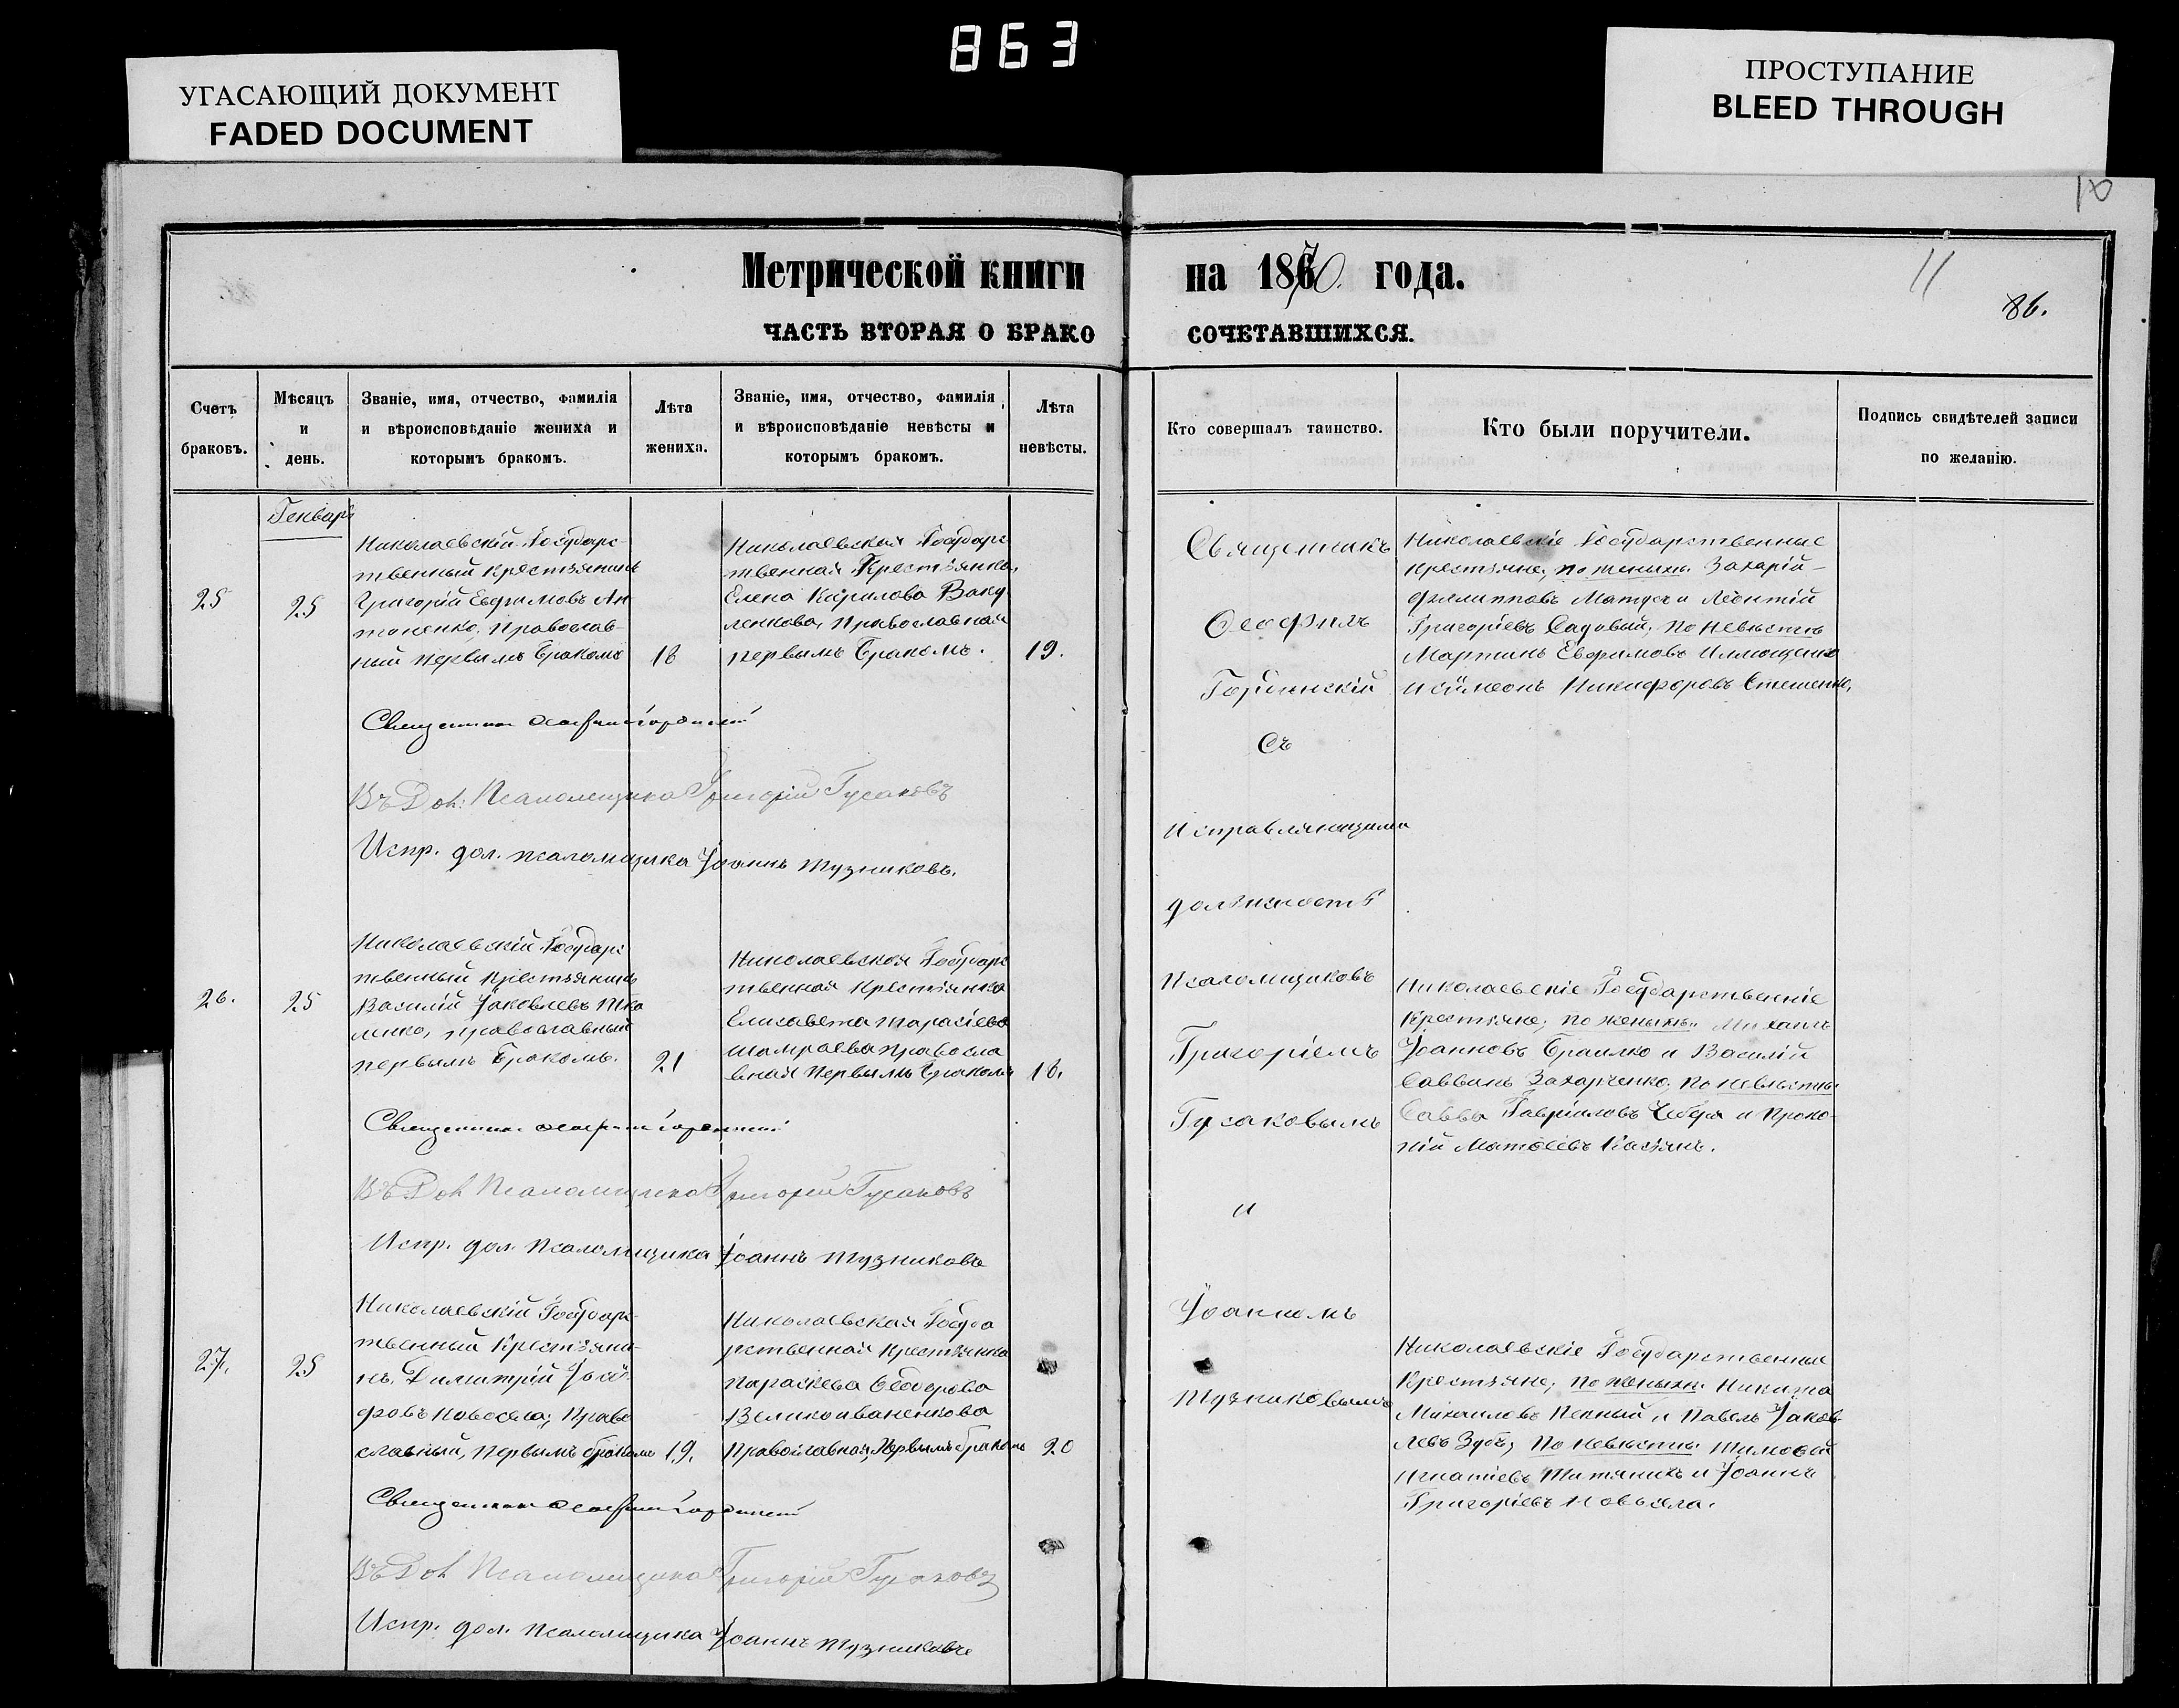 863
УГАСАЮЩИЙ ДОКУМЕНТ
FADED DOCUMENT
ПРОСТУПАНИЕ
BLEED THROUGH
10
Метрической книги на 1870. года.
11
86.
ЧАСТЬ ВТОРАЯ О БРАКОСОЧЕТАВШИХСЯ.
Счетъ браковъ.
Мѣсяцъ и день.
Званіе, имя, отчество, фамилія и вѣроисповѣданіе жениха и которымъ бракомъ.
Лѣта жениха.
Званіе, имя, отчество, фамилія и вѣроисповѣданіе невѣсты и которымъ бракомъ.
Лѣта невѣсты.
Кто совершалъ таинство.
Кто были поручители.
Подпись свидѣтелей записи по желанію.
Генварь
25
25
Николаевскій Государс-
твенный крестьянинъ
Григорій Евфимовъ Ан
тоненко, православ-
ный первымъ бракомъ
18
Николаевская Государс
твенная Крестьянка,
Елена Кирилова Ваку
ленкова, православная
первымъ бракомъ.
19.
Священникъ
Ѳеофилъ
Съ
Исправляющими
должность
Псаломщиковъ
Григоріемъ
Гусаковымъ
и
Іоанномъ
Тузниковымъ
Николаевскіе Государственные
крестьяне, по женихѣ Захарій
Филипповъ и Леонтій
Григоріевъ Садовый, по невѣстѣ
Мартинъ Евфимовъ
и Симеонъ Никифоровъ Стешенко,
Священникъ
Въ Дол. Псаломщика Григорій Гусаковъ
Испр. дол. псаломщика Іоаннъ Тузниковъ.
26.
25
Николаевскій Государс
твенный крестьянинъ
Василій Іаковлевъ Тка
ленко, православный
первымъ бракомъ.
21
Николаевская Государс
твенная крестьянка
Елисавета Тарасіева
Шамраева правосла
вная первымъ бракомъ
18.
Николаевскіе Государственніе
крестьяне, по женихѣ Михаилъ
Іоанновъ Браилко и Василій
Саввинъ Захарченко, по невѣстѣ
Савва Гавріиловъ и Проко-
пій Матѳеевъ Касьянъ.
Священникъ
Въ Дол Псаломщика Григорій Гусаковъ
Испр. дол. Псаломщика Іоаннъ Тузниковъ
27.
25
Николаевскій Государс-
твенный крестьяни-
нъ, Димитрій Іоси-
фовъ Новосела, Право
славный, первымъ бракомъ
19.
Николаевская Госуда
рственная крестьянка
Параскева Ѳеодорова
Великоиваненкова
Православная, Первымъ бракомъ
20
Николаевскіе Государственные
крестьяне, по женихѣ Никита
Михаиловъ и Павелъ Іаков-
левъ Зубъ, по невѣстѣ Тимоѳей
Игнатіевъ и Іоаннъ
Григоріевъ Новосела.
Священникъ
Въ Дол Псаломщика Григорій Гусаковъ
Испр. дол. Псаломщика Іоаннъ Тузниковъ